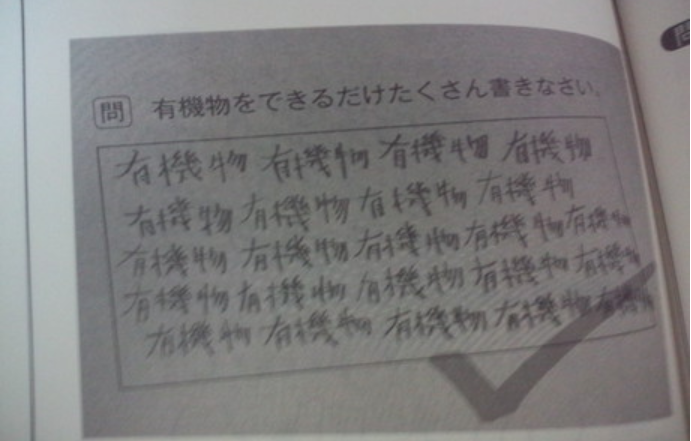 問 有機物をできるだけたくさん書きなさい。
有機物 有機物 有機物 有機物
有機物 有機物 有機物 有機物
有機物 有機物 有機物 有機物 有機物
有機物 有機物 有機物 有機物 有機
有機物 有機物 有機物 有機物 有機